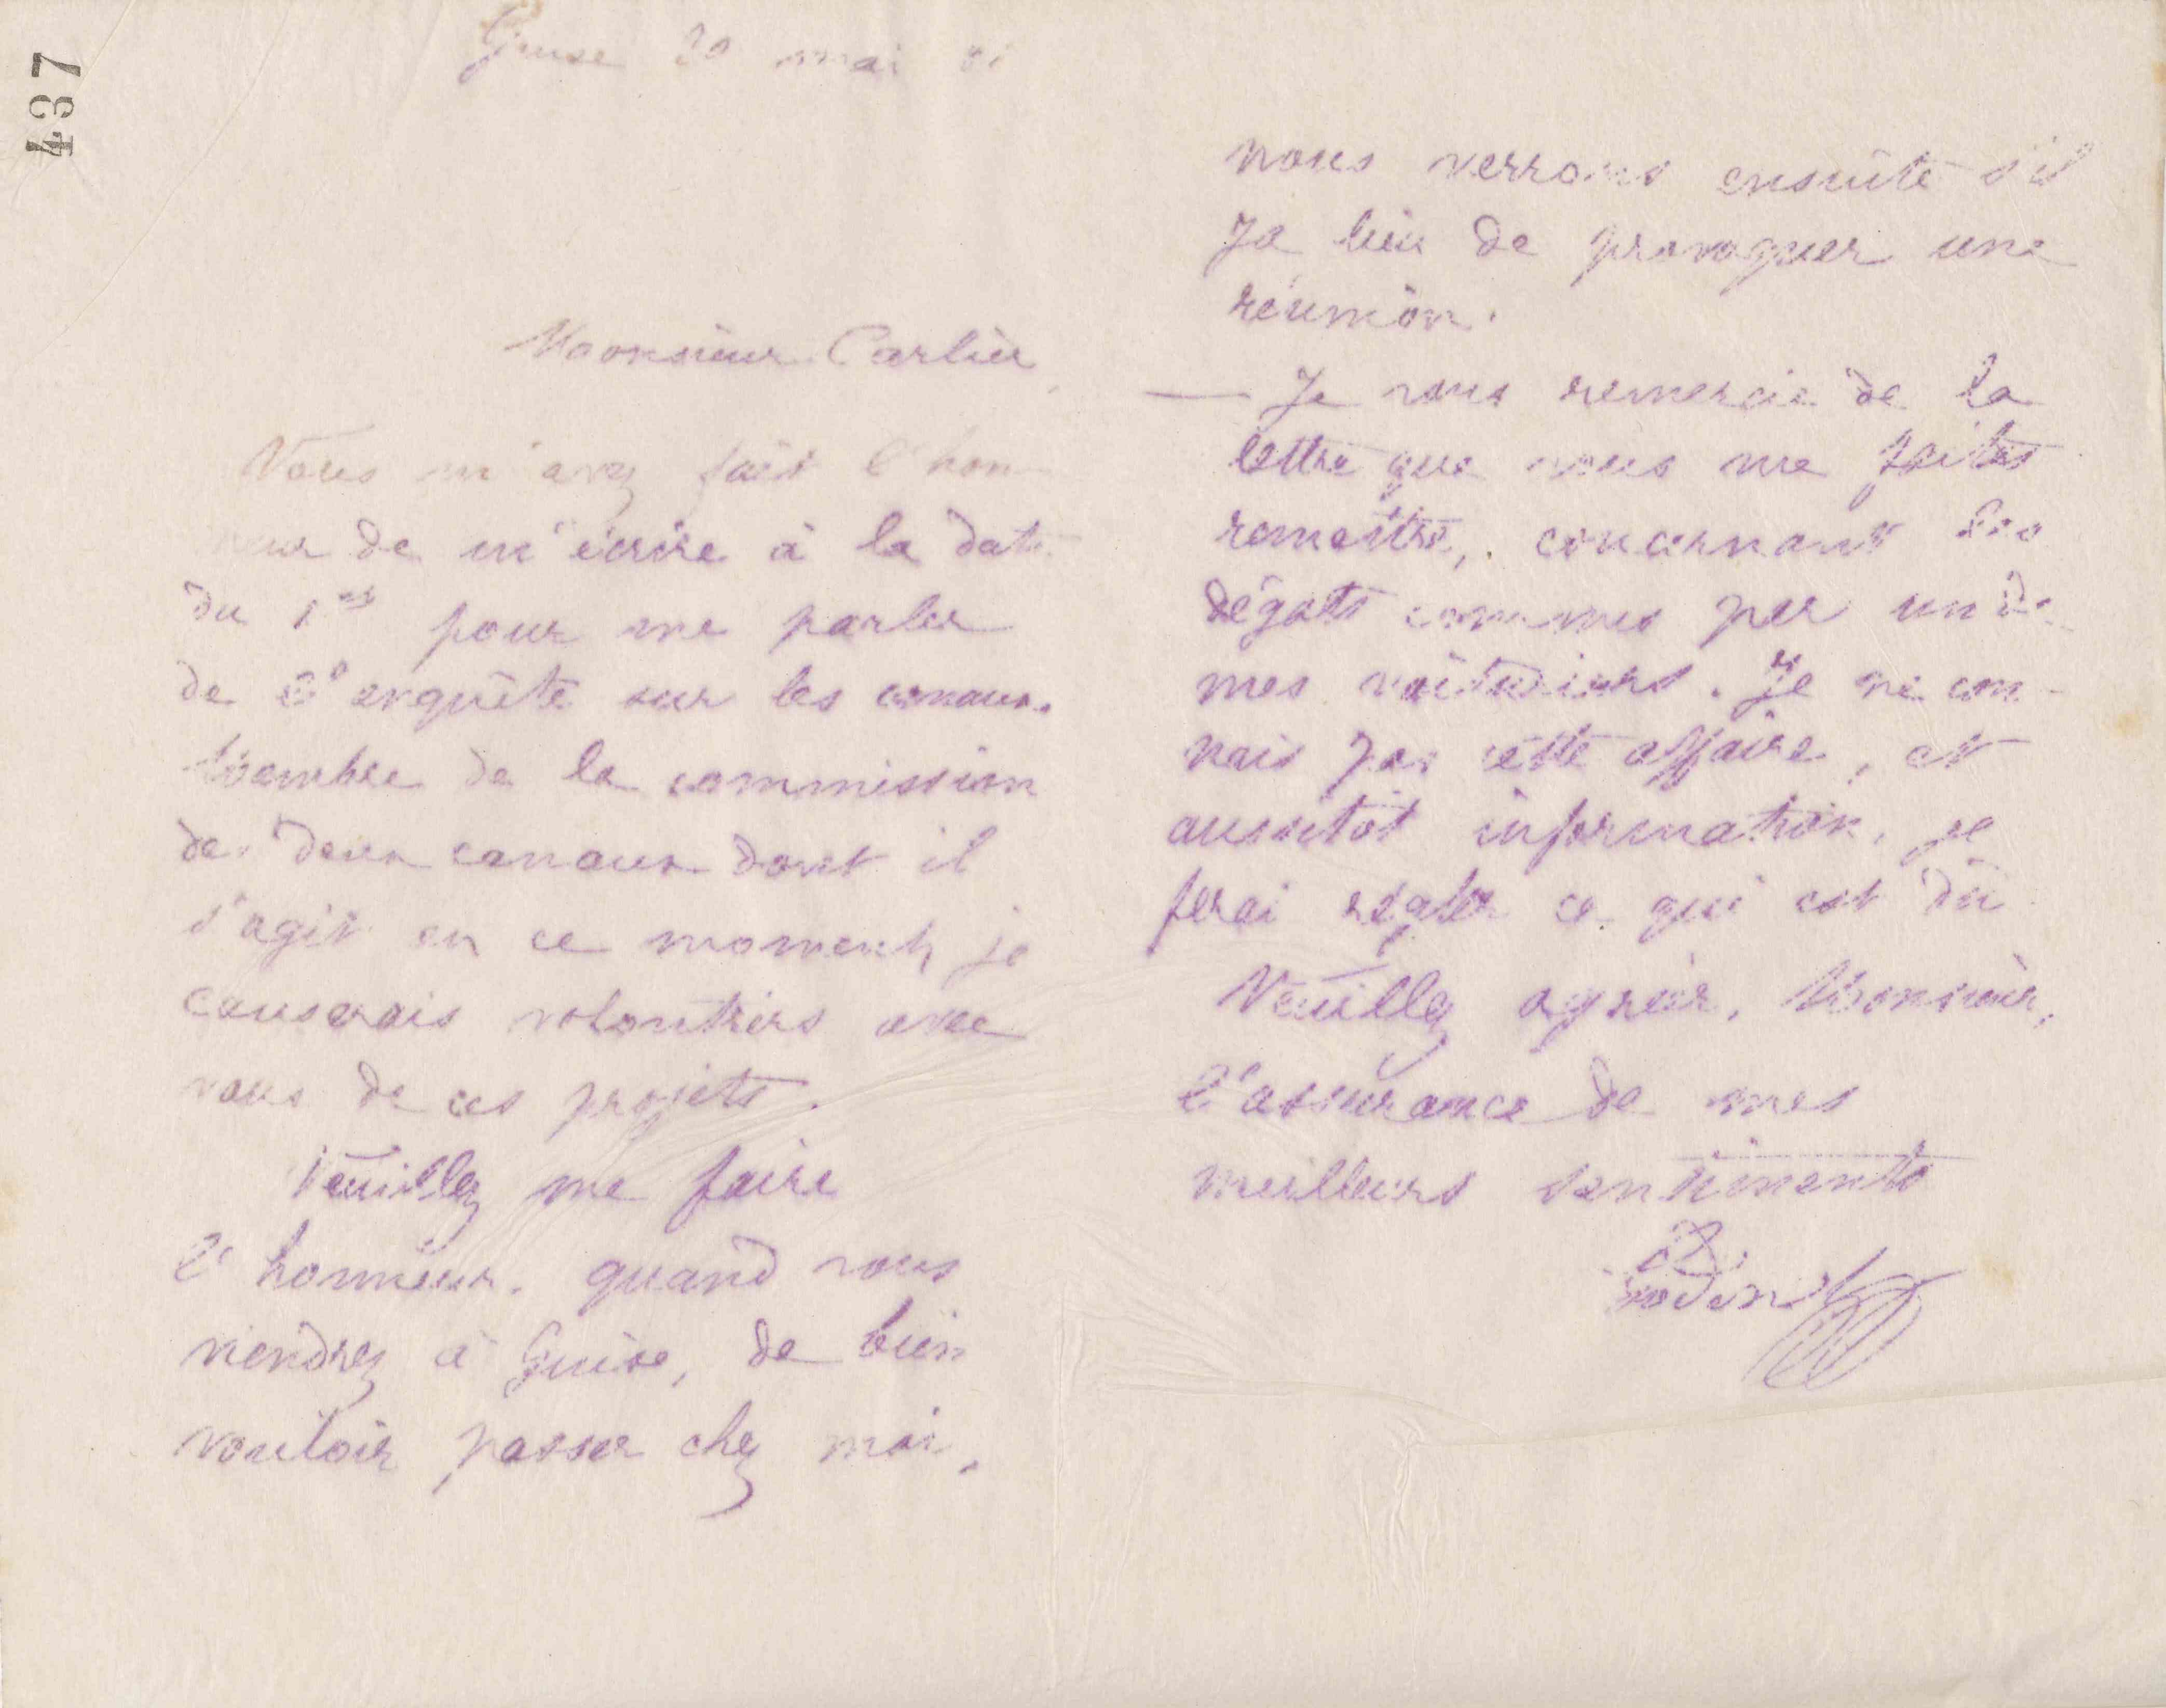 437
Guise 20 mai 81
Monsieur Carlier
Vous m'avez fait l'hon-
neur de m'écrire à la date
du 1er pour me parler
de l'enquête sur les canaux.
Membre de la commission
des deux canaux dont il
s'agit en ce moment, je
causerais volontiers avec
vous de ces projets.
Veuillez me faire
l'honneur, quand vous
viendrez à Guise, de bien
vouloir passer chez moi,
nous verrons ensuite s'il
y a lieu de provoquer une
réunion.
— Je vous remercie de la
lettre que vous me faites
remettre, concernant des
dégats commis par un de
mes voituriers. Je ne con-
nais pas cette affaire, et
aussitôt information, je
ferai régler ce qui est dû
Veuillez agréer, Monsieur,
l'assurance de mes
meilleurs sentiments
Godin